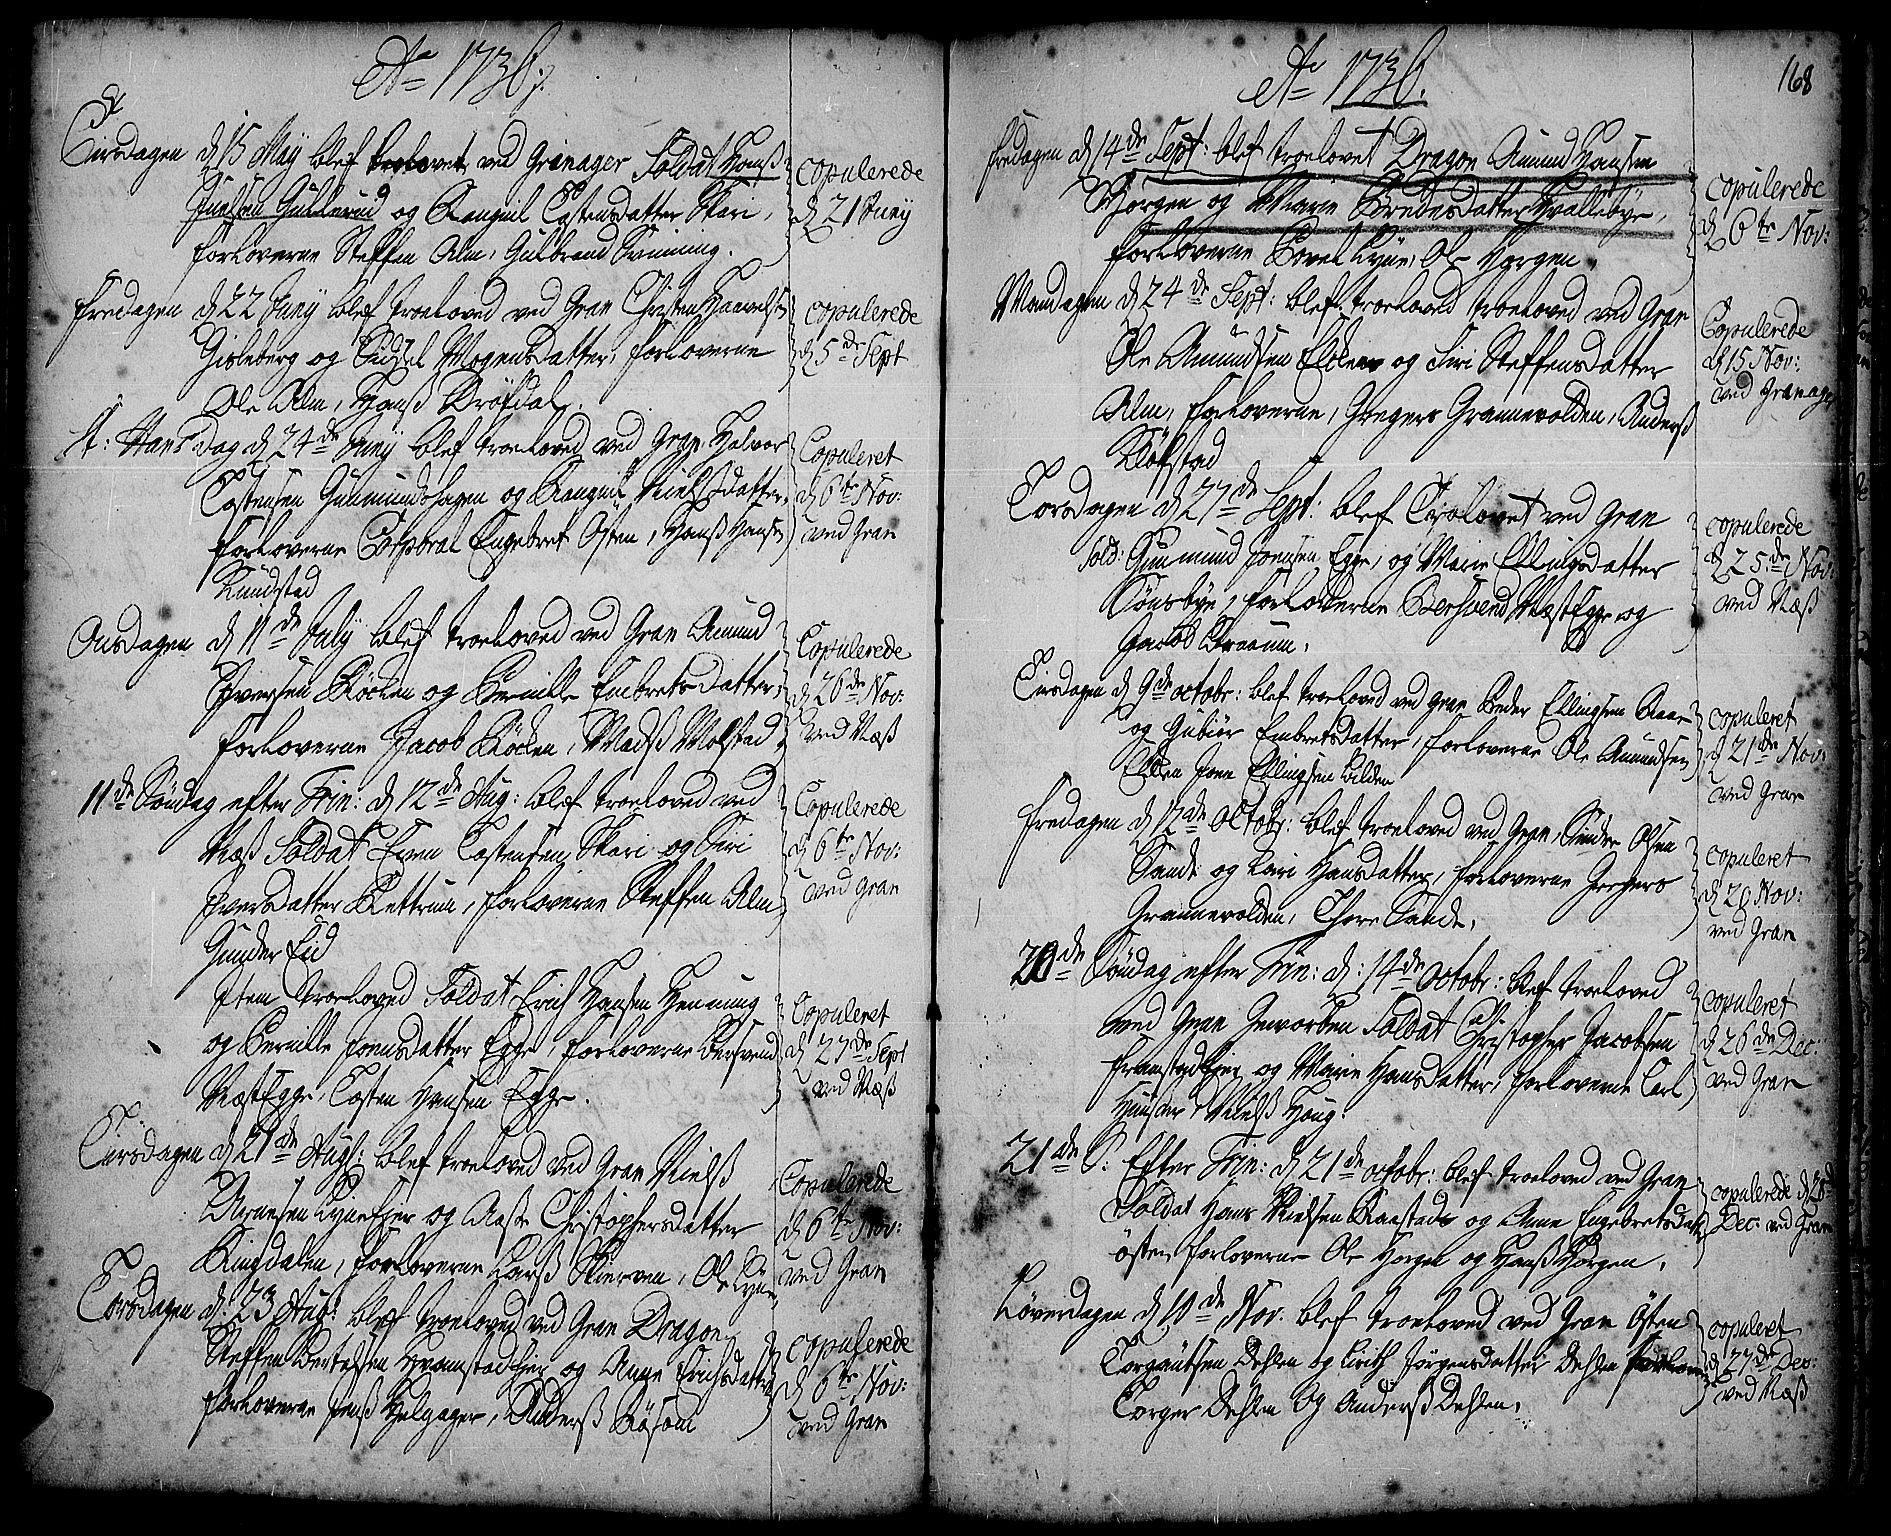 Ao 1736.
Tirsdagen d 15 May blef troelovet ved Granager Soldat Hanß
Juelsen Gullerud og Rangnil Tostensdatter Skari,
forloverne Steffen Alm, Gulbrand Svinning.
Copulerede
d 21 Juny
Fredagen d 22 Juny blef troeloved ved Gran Christen Haavelsen
Gisleberg og Sidsel Mogensdatter, forloverne
Ole Alm, Hanß Dröfdal.
Copulerede
d 5de Sept
St: Hans Dag d 24de Juny blef troeloved ved Gran Halvor
Tostensen Gunmundshagen og Rangnil Nielsdatter,
forloverne Corporal Engebret Östen, Hanß Hansen
Rundstad
Copuleret
d 6te Nov:
ved Gran
Onsdagen d 11de July blef troeloved ved Gran Amund
Iversen Röcken og Pernille Embretsdatter,
forloverne Jacob Röcken, Madß Molstad
Copulerede
d 26de Nov:
ved Næß
11de Söndag efter Trin: d 12de Aug: blef troeloved ved
Næß Soldat Even Tostensen Skari og Siri
Iversdatter Kettrum, forloverne Steffen Alm
Gunder Eid
Copulerede
d 6te Nov:
ved Gran
Item troeloved Soldat Erich Hansen Henning
og Pernille Joensdatter Egge, forloverne Bersvend
NæstEgge, Tosten Hansen Egge.
Copuleret
d 27de Sept
ved Næß
Tirsdagen d 21de Aug: blef troeloved ved Gran Nielß
Arnesen LyneEjer og Aaste Christophersdatter
Ringdalen, forloverne Larß Skierven, Ole Lyne,
Copulerede
d 6te Nov:
ved Gran
Torsdagen d: 23 Aug: blef troeloved ved Gran Dragon
Steffen Bertelsen Framstadejer og Anne Erichsdatter
forloverne Jenß Helgager, Anderß Röson
copulerede
d 6te Nov:
ved Gran
Ao 1736.
168
Fredagen d 14de Sept: blef troelovet Dragon Amund Hansen
Horgen og Marie Bredesdatter Hvallebye,
forloverne Povel Lyne, Ole Horgen.
copulerede
d 6te Nov:
Mandagen d 24de Sept: blef troeloved ved Gran
Ole Amundsen Elden og Siri Steffensdatter
Alm, forloverne, Gregers Grannevolden, Anderß
Klöfstad
Copulerede
d 15 Nov:
ved Granager
Torsdagen d 27de Sept: blef Trolovet ved Gran
Sold: Gunmund Joensen Egge, og Marie Ellingsdatter
Sönsbye, forloverne Bersvend NæstEgge og
Jacob
copulerede
d 25de Nov:
ved Næß
Tirsdagen d 9de octobr: blef troeloved ved Gran Peder Ellingsen
og Gubiör Embretsdatter, forloverne Ole Amundsen
Elden Joen Ellingsen
copuleret
d 21de Nov:
ved Gran
Fredagen d 12de Octobr: blef troeloved ved Gran, Sindre Olsen
Sande og Kari Hansdatter, forloverne Gregers
Grannevolden, Thore Sande.
copuleret
d 20 Nov:
ved Gran
20de Söndag efter Trin: d: 14de octobr: blef troeloved
ved Gran Geworben Soldat Christopher Jacobsen
FramstadEjer og Marie Hansdatter, forloverne Carl
Nielß Houg.
copuleret
d 26de Dec:
ved Gran
21de S: Efter Trin: d 21de octobr: blef troeloved ved Gran
Soldat Hans Nielsen Raastad og Anne Engebretsdatter
östen forloverne Ole Horgen og Hanß Horgen.
copulerede d
Dec: ved Gran
Löverdagen d 10de Nov. blef troeloved ved Gran Östen
Torgautsen Dehlen og Kirsti Jörgensdatter Dehlen forloverne
Torger Dehlen og Anderß Dehlen.
copuleret
d 27de Dec:
ved Næß